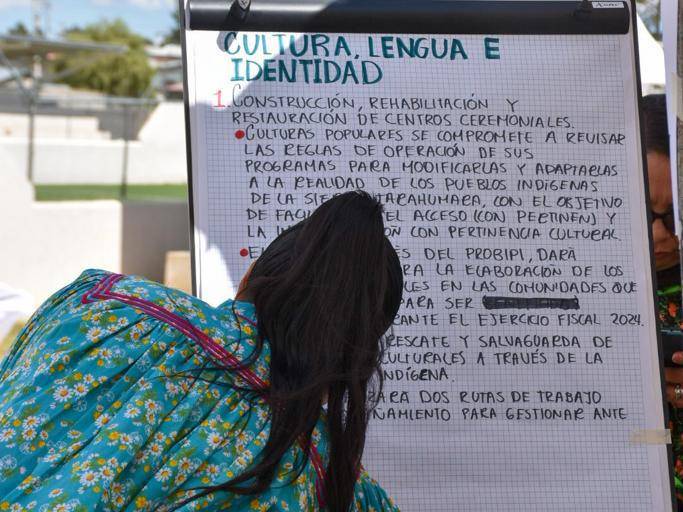 CULTURA, LENGUA E
IDENTIDAD
1. CONSTRUCCIÓN, REHABILITACIÓN Y
RESTAURACIÓN DE CENTROS CEREMONIALES.
• CULTURAS POPULARES SE COMPROMETE A REVISAR
LAS REGLAS DE OPERACIÓN DE SUS
PROGRAMAS PARA MODIFICARLAS Y ADAPTARLAS
A LA REALIDAD DE LOS PUEBLOS INDÍGENAS
DE LA TARAHUMARA, CON EL OBJETIVO
DE EL ACCESO (CON PERTINEN) Y
LA CON PERTINENCIA CULTURAL.
• DEL PROBIPI, DARÁ
LA ELABORACIÓN DE LOS
EN LAS COMUNIDADES QUE
PARA SER
EL EJERCICIO FISCAL 2024.
RESCATE Y SALVAGUARDA DE
CULTURALES A TRAVÉS DE LA
INDÍGENA.
DOS RUTAS DE TRABAJO
PARA GESTIONAR ANTE